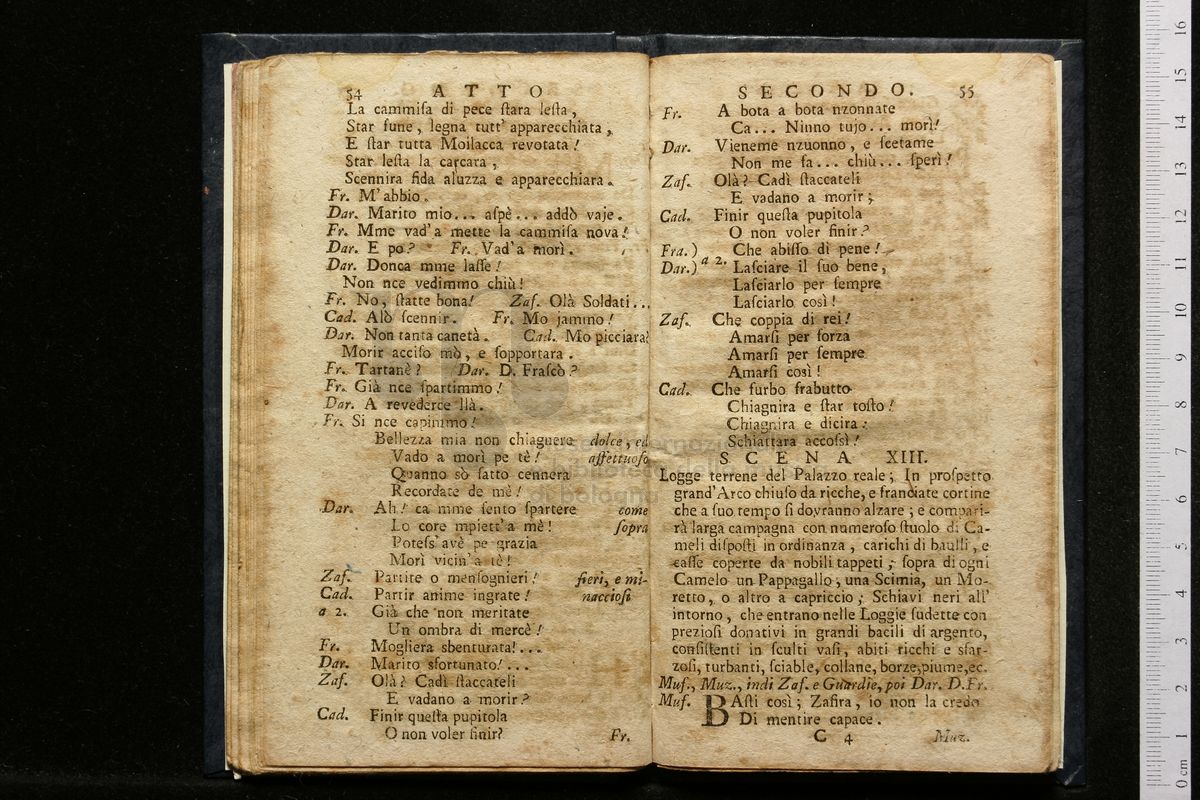 54 ATTO
La cammiſa di pece ſtara leſta,
Star fune, legna tutt' apparecchiata,
E ſtar tutta Moilacca revotata!
Star leſta la carcara,
Scennira fida aluzza e apparecchiara.
Fr. M'abbio.
Dar. Marito mio... aſpè... addò vaje.
Fr. Mme vad'a mette la cammiſa nova!
Dar. E po? Fr. Vad'a morì.
Dar. Donca mme laſſe!
Non nce vedimmo chiù!
Fr. No, ſtatte bona! Zaf. Olà Soldati...
Cad. Alò ſcennir. Fr. Mo jammo!
Dar. Non tanta canetà. Cad. Mo picciara?
Morir acciſo mò, e ſopportara.
Fr. Tartanè? Dar. D. Fraſcò?
Fr. Già nce ſpartimmo!
Dar. A revederce llà.
Fr. Si nce capimmo!
Bellezza mia non chiaguere dolce, ed
Vado a morì pe tè! affettuoſo
Quanno sò fatto cennera
Recordate de mè!
Dar. Ah! ca mme ſento ſpartere come
Lo core mpiett'a mè! ſopra
Poteſs' avè pe grazia
Morì vicin'a tè!
Zaf. Partite o menſognieri! fieri, e mi-
Cad. Partir anime ingrate! nacciosi
a 2. Già che non meritate
Un ombra di mercè!
Fr. Mogliera sbenturata!...
Dar. Marito sfortunato!...
Zaf. Olà? Cadì ſtaccateli
E vadano a morir?
Cad. Finir queſta pupitola
O non voler finir?
Fr.
SECONDO. 55
Fr. A bota a bota nzonnate
Ca... Ninno tujo... morì!
Dar. Vieneme nzuonno, e ſcetame
Non me fa... chiù... ſperì!
Zaf. Olà? Cadì ſtaccateli
E vadano a morir;
Cad. Finir queſta pupitola
O non voler finir?
Fra.) Che abiſſo di pene!
Dar.) a 2. Laſciare il ſuo bene,
Laſciarlo per ſempre
Laſciarlo così!
Zaf. Che coppia di rei!
Amarſi per forza
Amarſi per ſempre
Amarſi così!
Cad. Che furbo frabutto
Chiagnira e ſtar toſto!
Chiagnira e dicira:
Schiattara accoſsì!
SCENA XIII.
Logge terrene del Palazzo reale; In proſpetto
grand'Arco chiuſo da ricche, e frangiate cortine
che a ſuo tempo ſi dovranno alzare; e compari-
rà larga campagna con numeroſo ſtuolo di Ca-
meli diſpoſti in ordinanza, carichi di baulli, e
caſſe coperte da nobili tappeti; ſopra di ogni
Camelo un Pappagallo, una Scimia, un Mo-
retto, o altro a capriccio; Schiavi neri all'
intorno, che entrano nelle Loggie ſudette con
prezioſi donativi in grandi bacili di argento,
conſiſtenti in ſculti vaſi, abiti ricchi e sfar-
zoſi, turbanti, ſciable, collane, borze, piume, ec.
Muſ., Muz., indi Zaf. e Guardie, poi Dar. D. Fr.
Muſ. BAſti così; Zafira, io non la credo
Di mentire capace.
C 4 Muz.